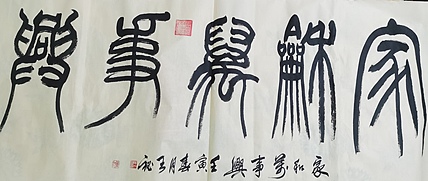 家龢萬事興
家和萬事興 壬寅春月